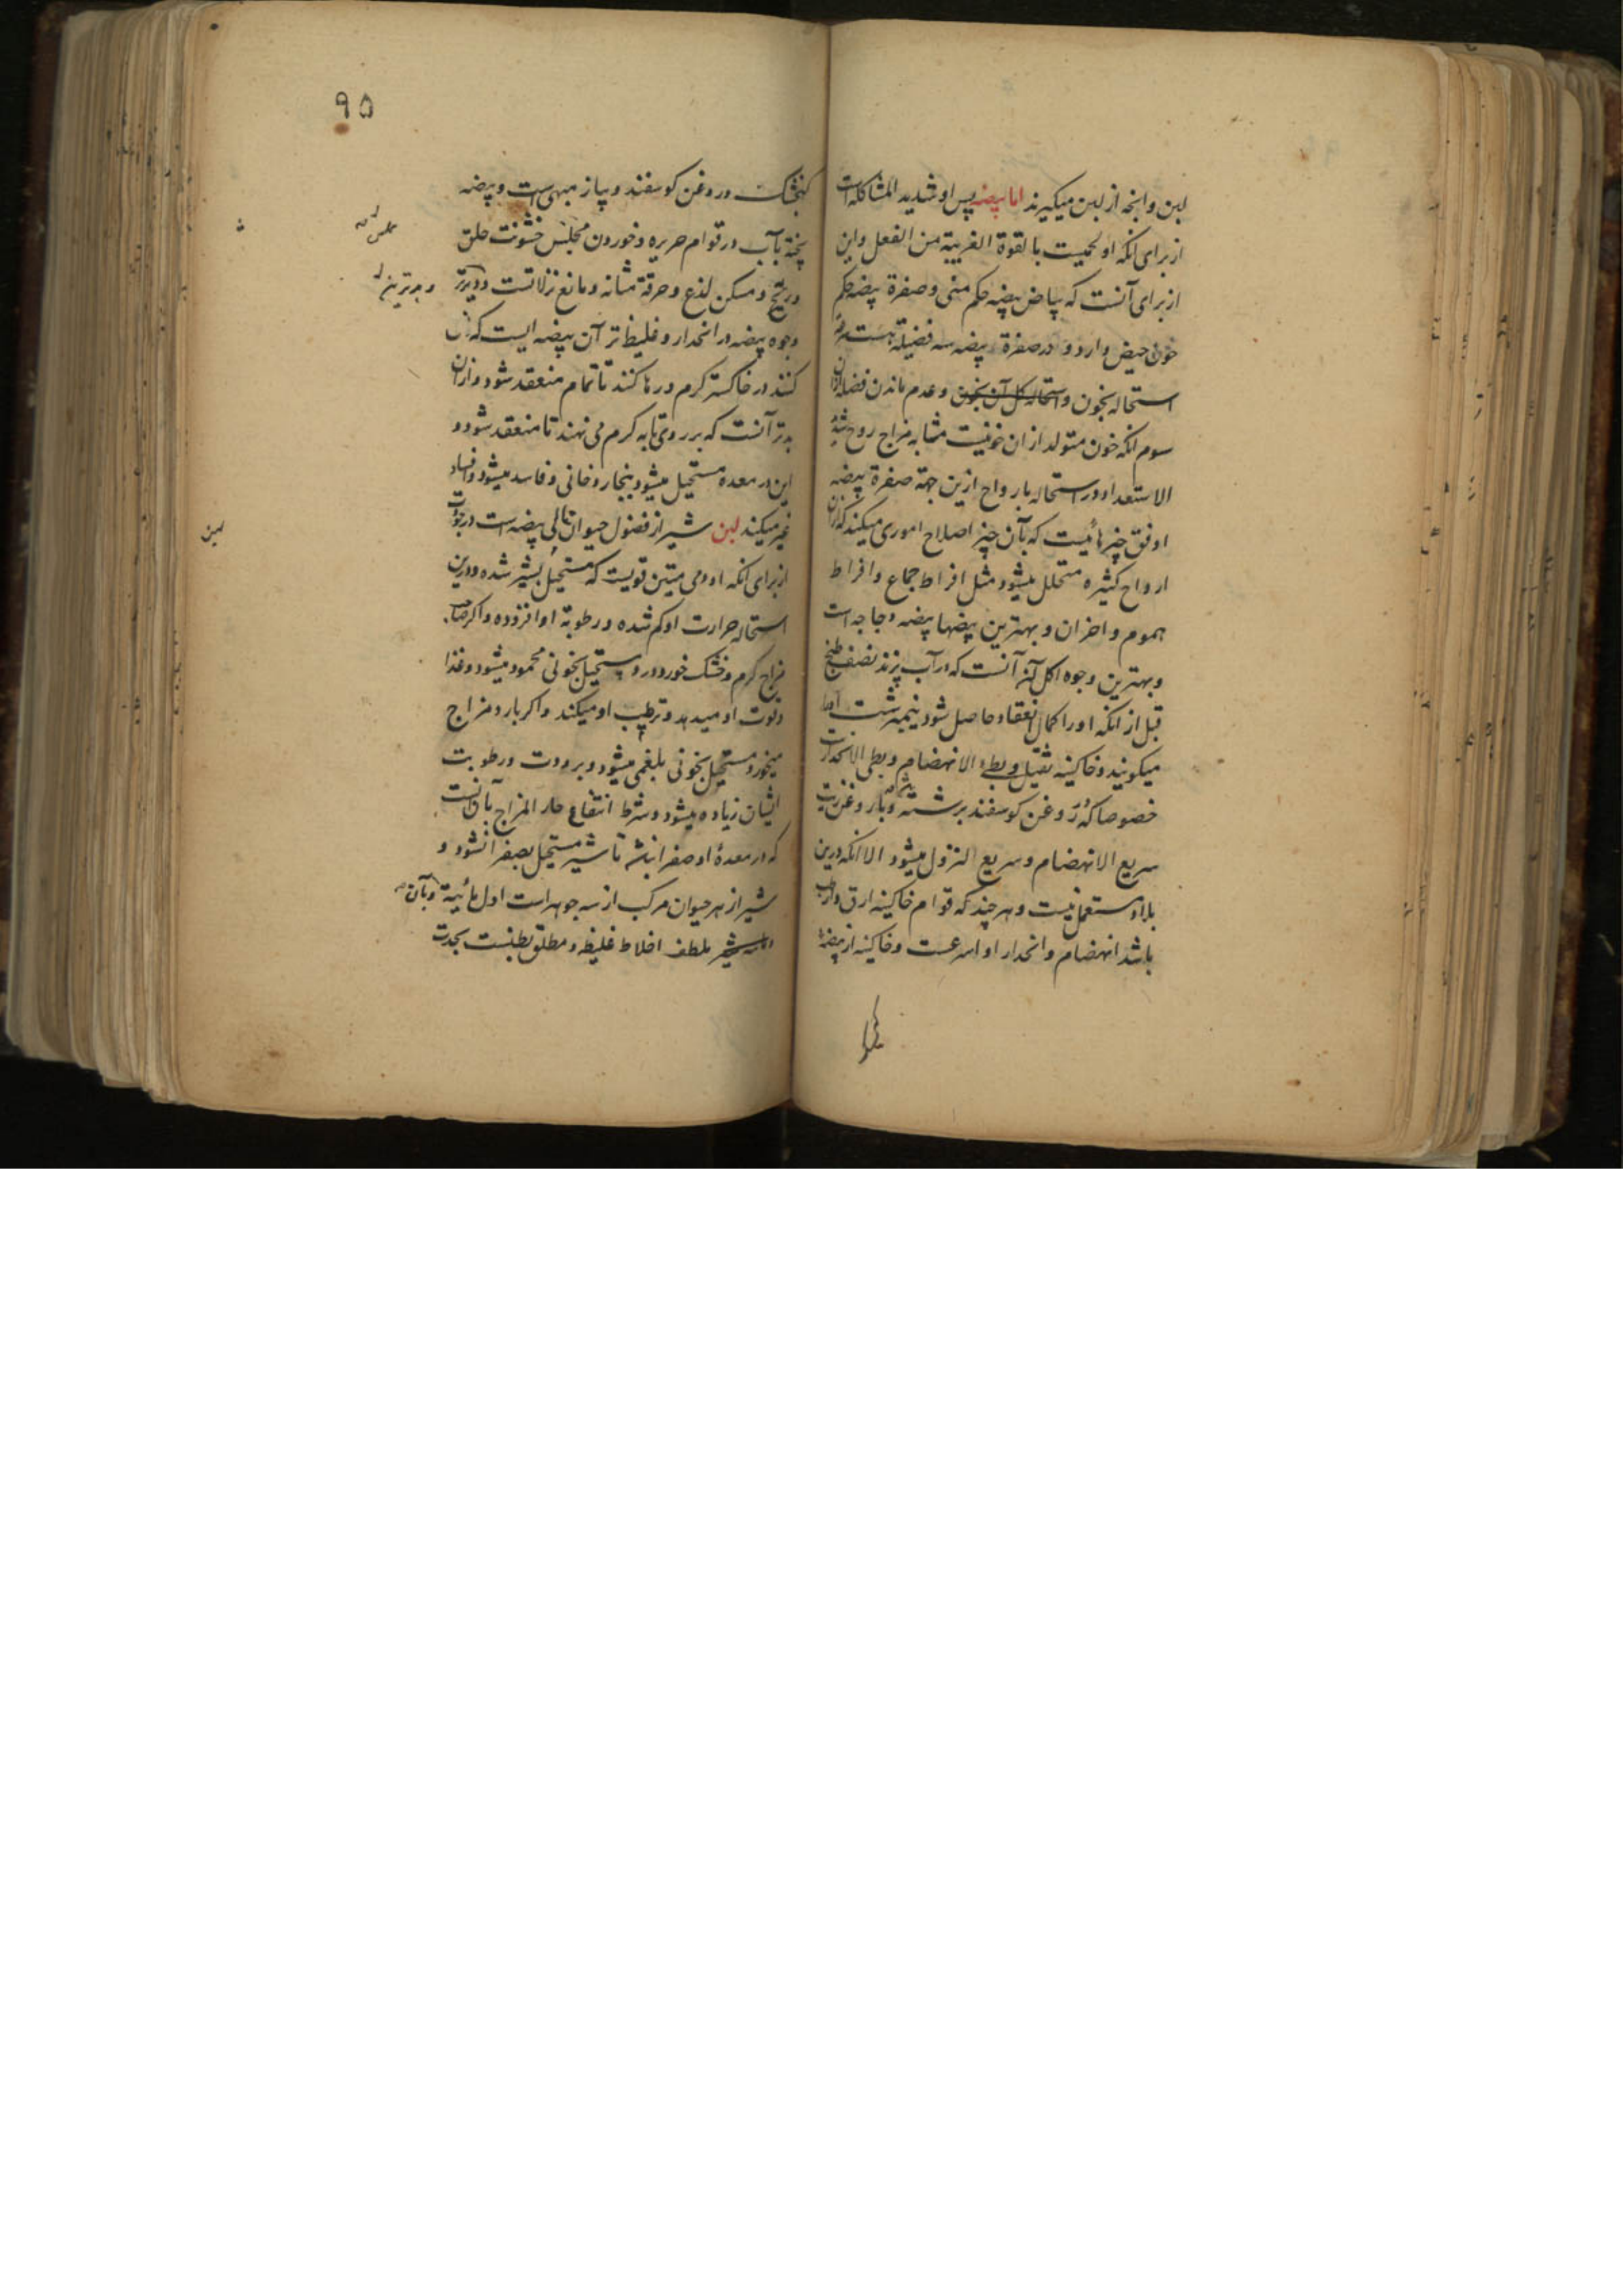 لبن وانچه از لبن میکیرند اما بیضه پس او شدید المشاکله است
از برای انکه او لحمیت بالقوة القریبة من الفعل واین
از برای آنست که بیاض بیضه حکم منی و صفرة بیضه حکم
خون حیض دارد و در صفرة بیضه سه فضیلة هست
استحاله بخون و استحاله کل آن بخون و عدم ماندن فضله ازان
سوم انکه خون متولد ازان خونیست مشابه مزاج روح شدید
الاستعداد در استحاله بارواح ازین جهة صفرة بیضه
اوفق چیزهائیست که بآن چیز اصلاح اموری میکنند که ازان
ارواح کثیره متحلل میشود مثل افراط جماع و افراط
هموم و احزان و بهترین بیضها بیضه دجاجه است
و بهترین وجوه اکل آن آنست که در آب پزند نصف طبخ
قبل از انکه اورا کمال انعقاد حاصل شود نیمبرشت
میکویند و خاکینه ثقیل و بطء الانهضام و بطی الانحدار
خصوصا که در روغن کوسفند برشته و با روغن زیت
سریع الانهضام و سریع النزول میشود الا انکه درین
بلاد مستعمل نیست و هرچند که قوام خاکینه ارق و ارطب
باشد انهضام و انحدار او اسرعست و خاکینه از بیضه
۹۵
کنجشک در روغن کوسفند و پیاز مبهی است و بیضه
پخته بآب در قوام حریره و خوردن مجلس خشونت حلق
و ریح و مسکن لذع و حرقة مثانه و مانع نزلاتست
و بدترین
وجوه بیضه در انحدار و غلیظ تر آن بیضه ایست که
کنند در خاکستر کرم و رها کنند تا تمام منعقد شود و ازان
بدتر آنست که بر روی تابه کرم می نهند تا منعقد شود و
این در معده مستحیل میشود ببخار دخانی و فاسد میشود و افساد
غیر میکند لبن شیر از فضول حیوان تالی بیضه است در جودت
از برای انکه او دمی متین قویست که مستحیل بشیر شده و درین
استحاله حرارت او کم شده و رطوبة او افزوده و اکر صاحب
مزاج کرم و خشک خورد در و مستحیل بخونی محمود میشود و غذا
و قوت او میدهد و ترطیب او میکند و اکر بارد مزاج
میخورد مستحیل بخونی بلغمی میشود و برودت و رطوبت
ایشان زیاده میشود و شرط انتفاع حار المزاج بآن آنست
که در معدۀ او صفرا نباشد تا شیر مستحیل بصفرا نشود و
شیر از هر حیوان مرکب از سه جوهر است اول مائیة و بآن
ملطف اخلاط غلیظه و مطلق بطنست بحدت
لبن